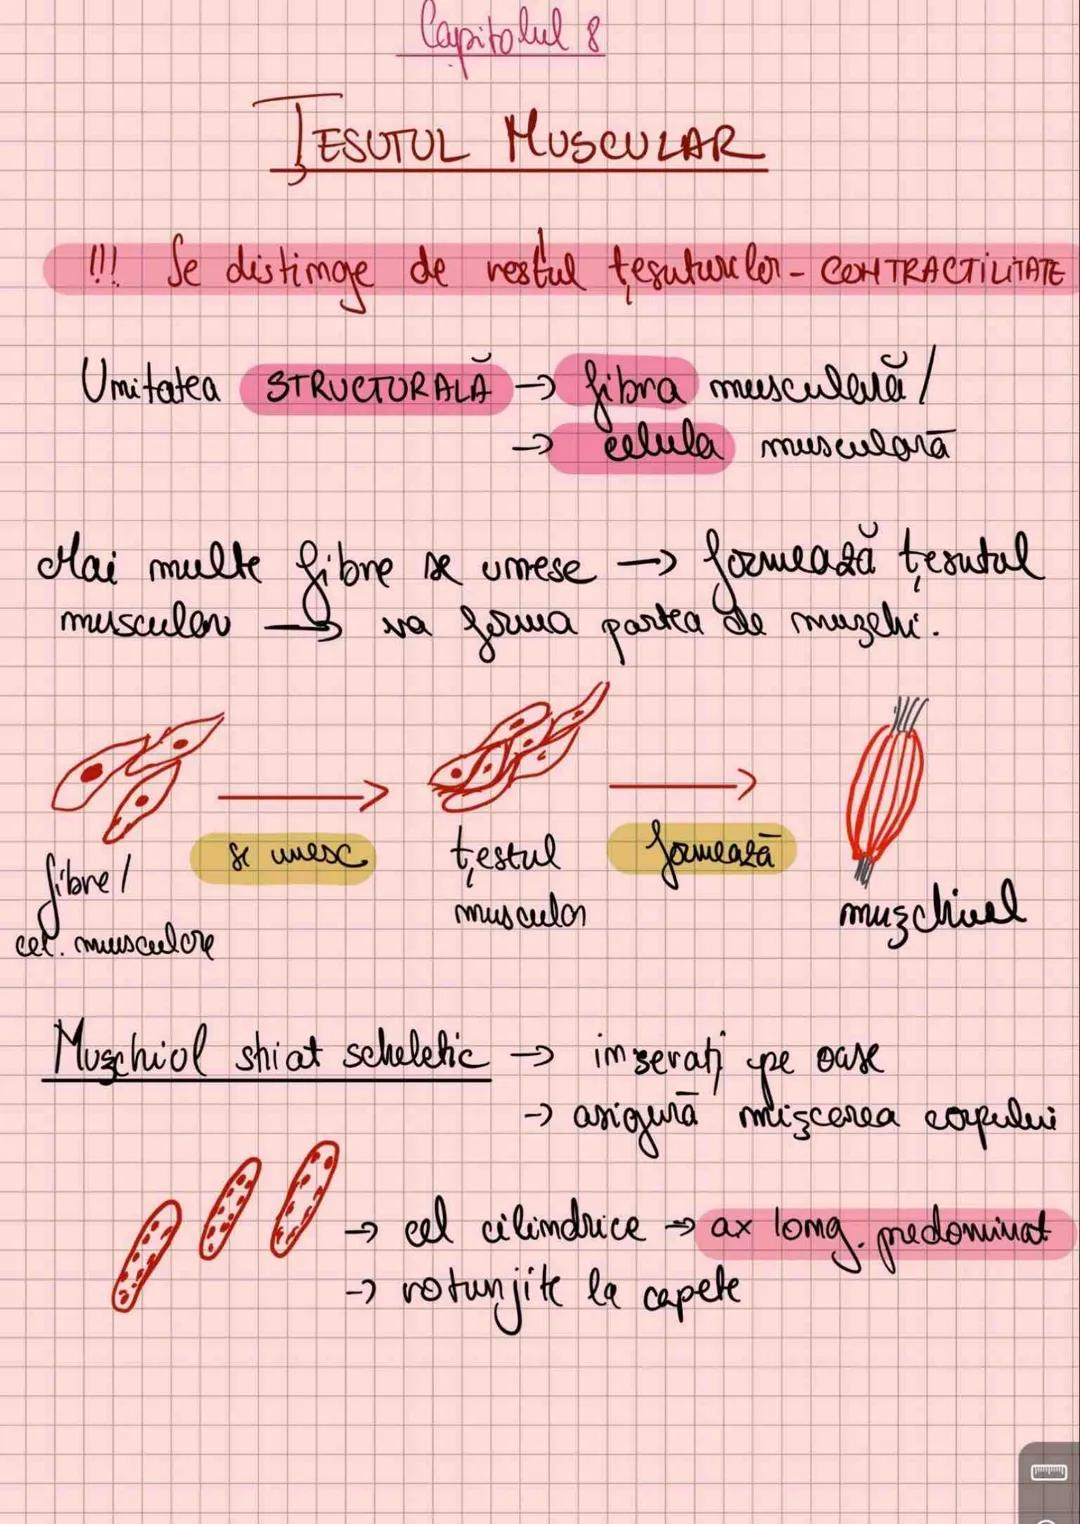 Capitolul 8
ȚESUTUL MUSCULAR
!!! Se distinge de restul țesuturilor - CONTRACTILITATE
Unitatea STRUCTURALĂ → fibra musculară /
→ celula musculară
Mai multe fibre se unesc → formează țesutul
muscular → va forma partea de mușchi.
fibre /
cel. musculare
se unesc
țestul
muscular
formează
mușchiul
Mușchiul striat scheletic → inserați pe oase
→ asigură mișcarea corpului
→ cel cilindrice → ax long. predominat
→ rotunjite la capete